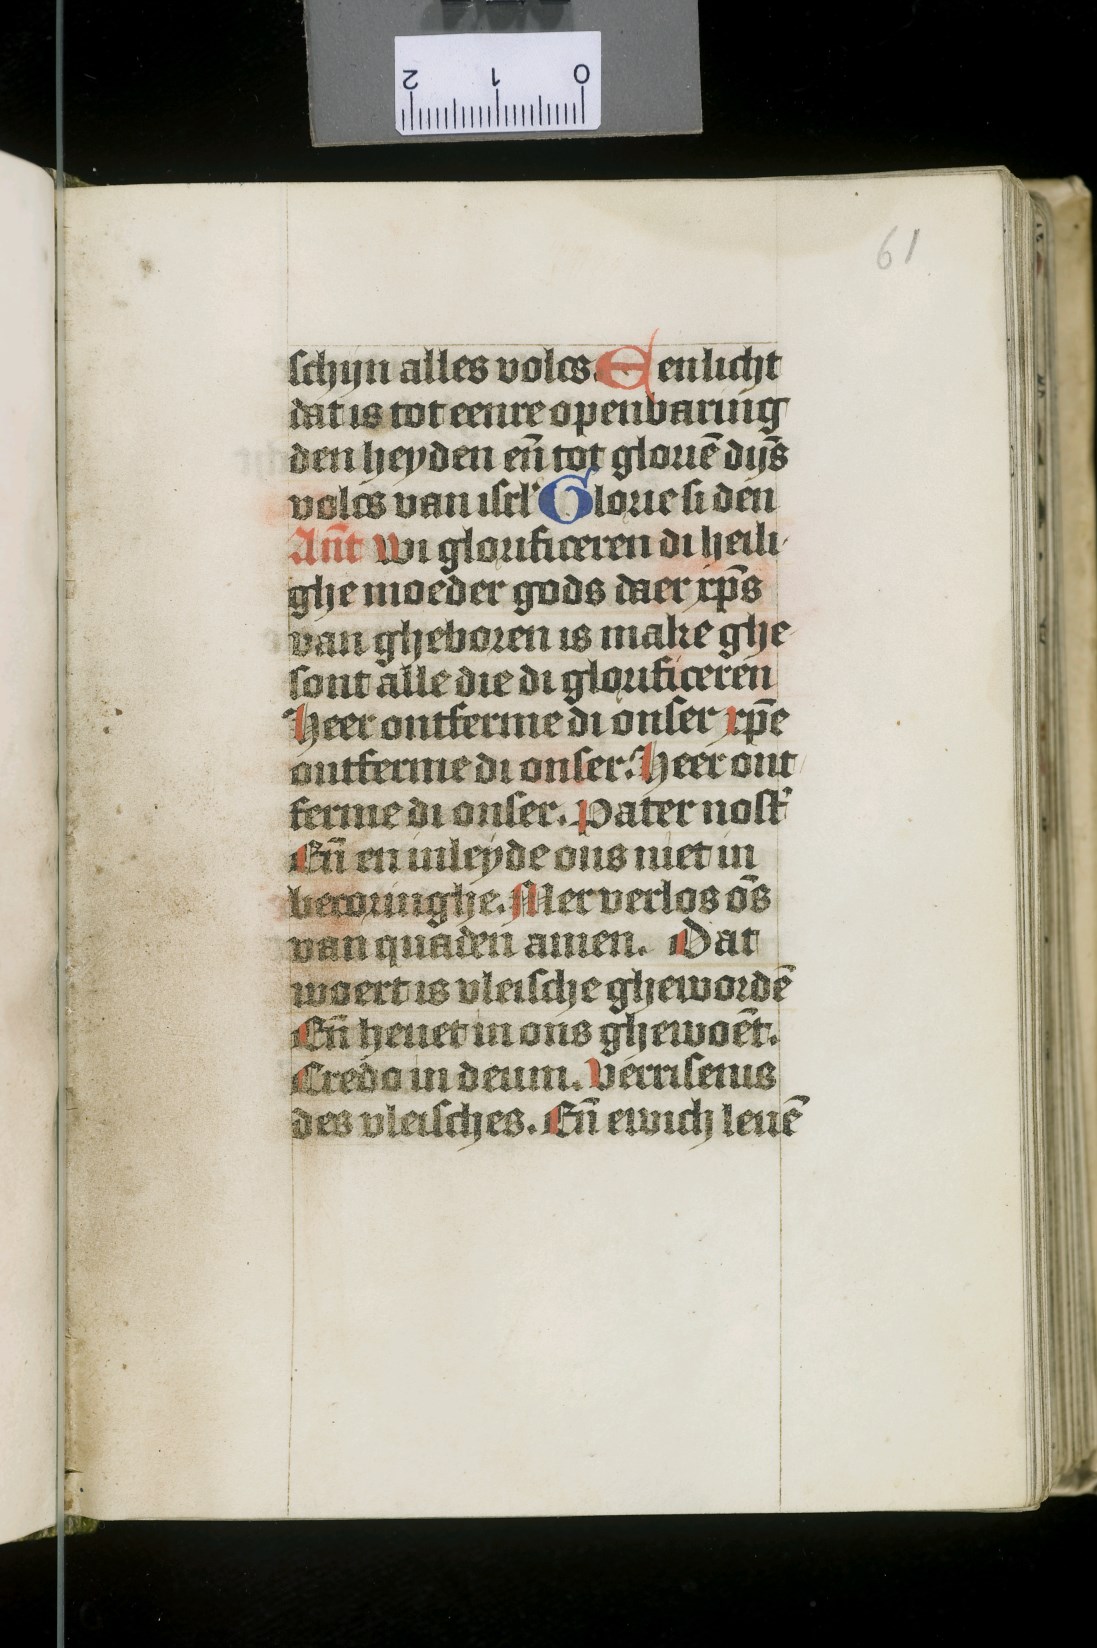 2 1 0
61
schijn alles volcs. Een licht
dat is tot eenre openbaring
den heyden en̄ tot glorie̅ dijs̅
volcs van isrl' Glorie si den
An̄t wi glorificeren di heili
ghe moeder gods daer xp̅s
van gheboren is make ghe
sont alle die di glorificeren
Heer ontferme di onser xp̅e
ontferme di onser. Heer ont
ferme di onser. Pater nost'
En̄ en inleyde ons niet in
becoringhe. Mer verlos o̅s
van quaden amen. Dat
woert is vleische ghewordē
En̄ heuet in ons ghewoēt.
Credo in deum. Verrisenis
des vleisches. En̄ ewich leuē